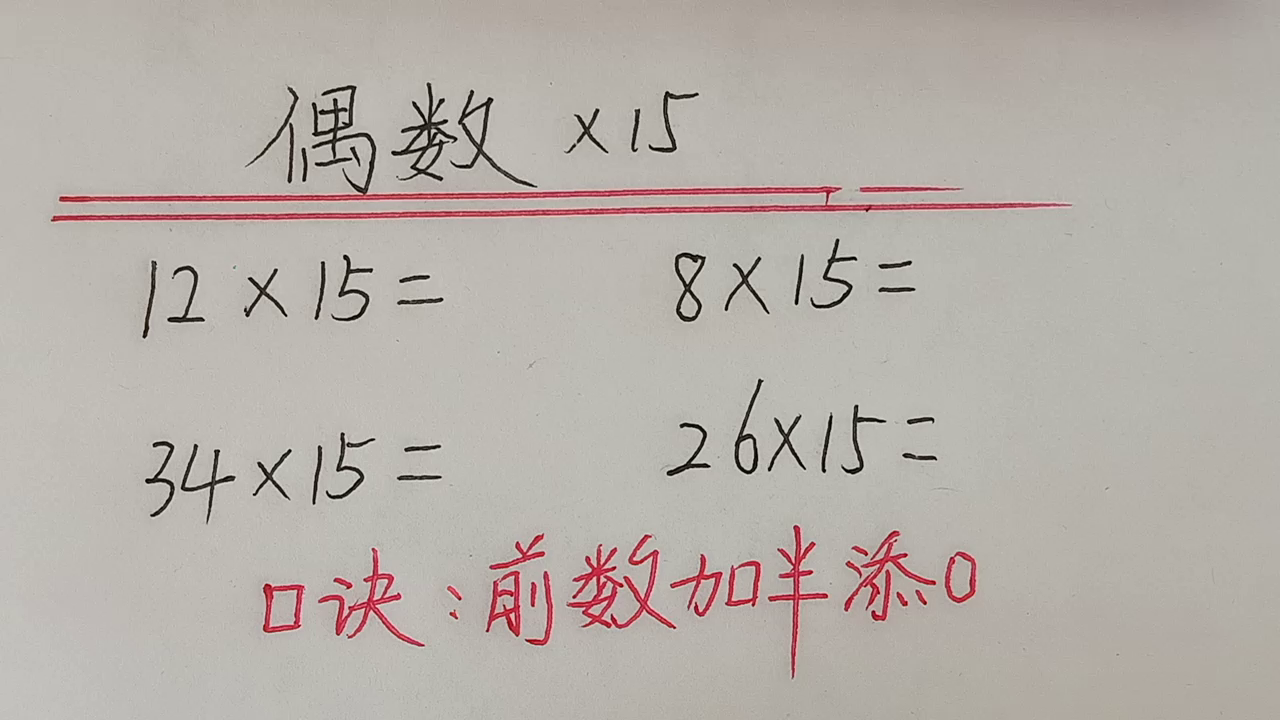 偶数 ×15
12×15= 8×15=
34×15= 26×15=
口诀:前数加半添0